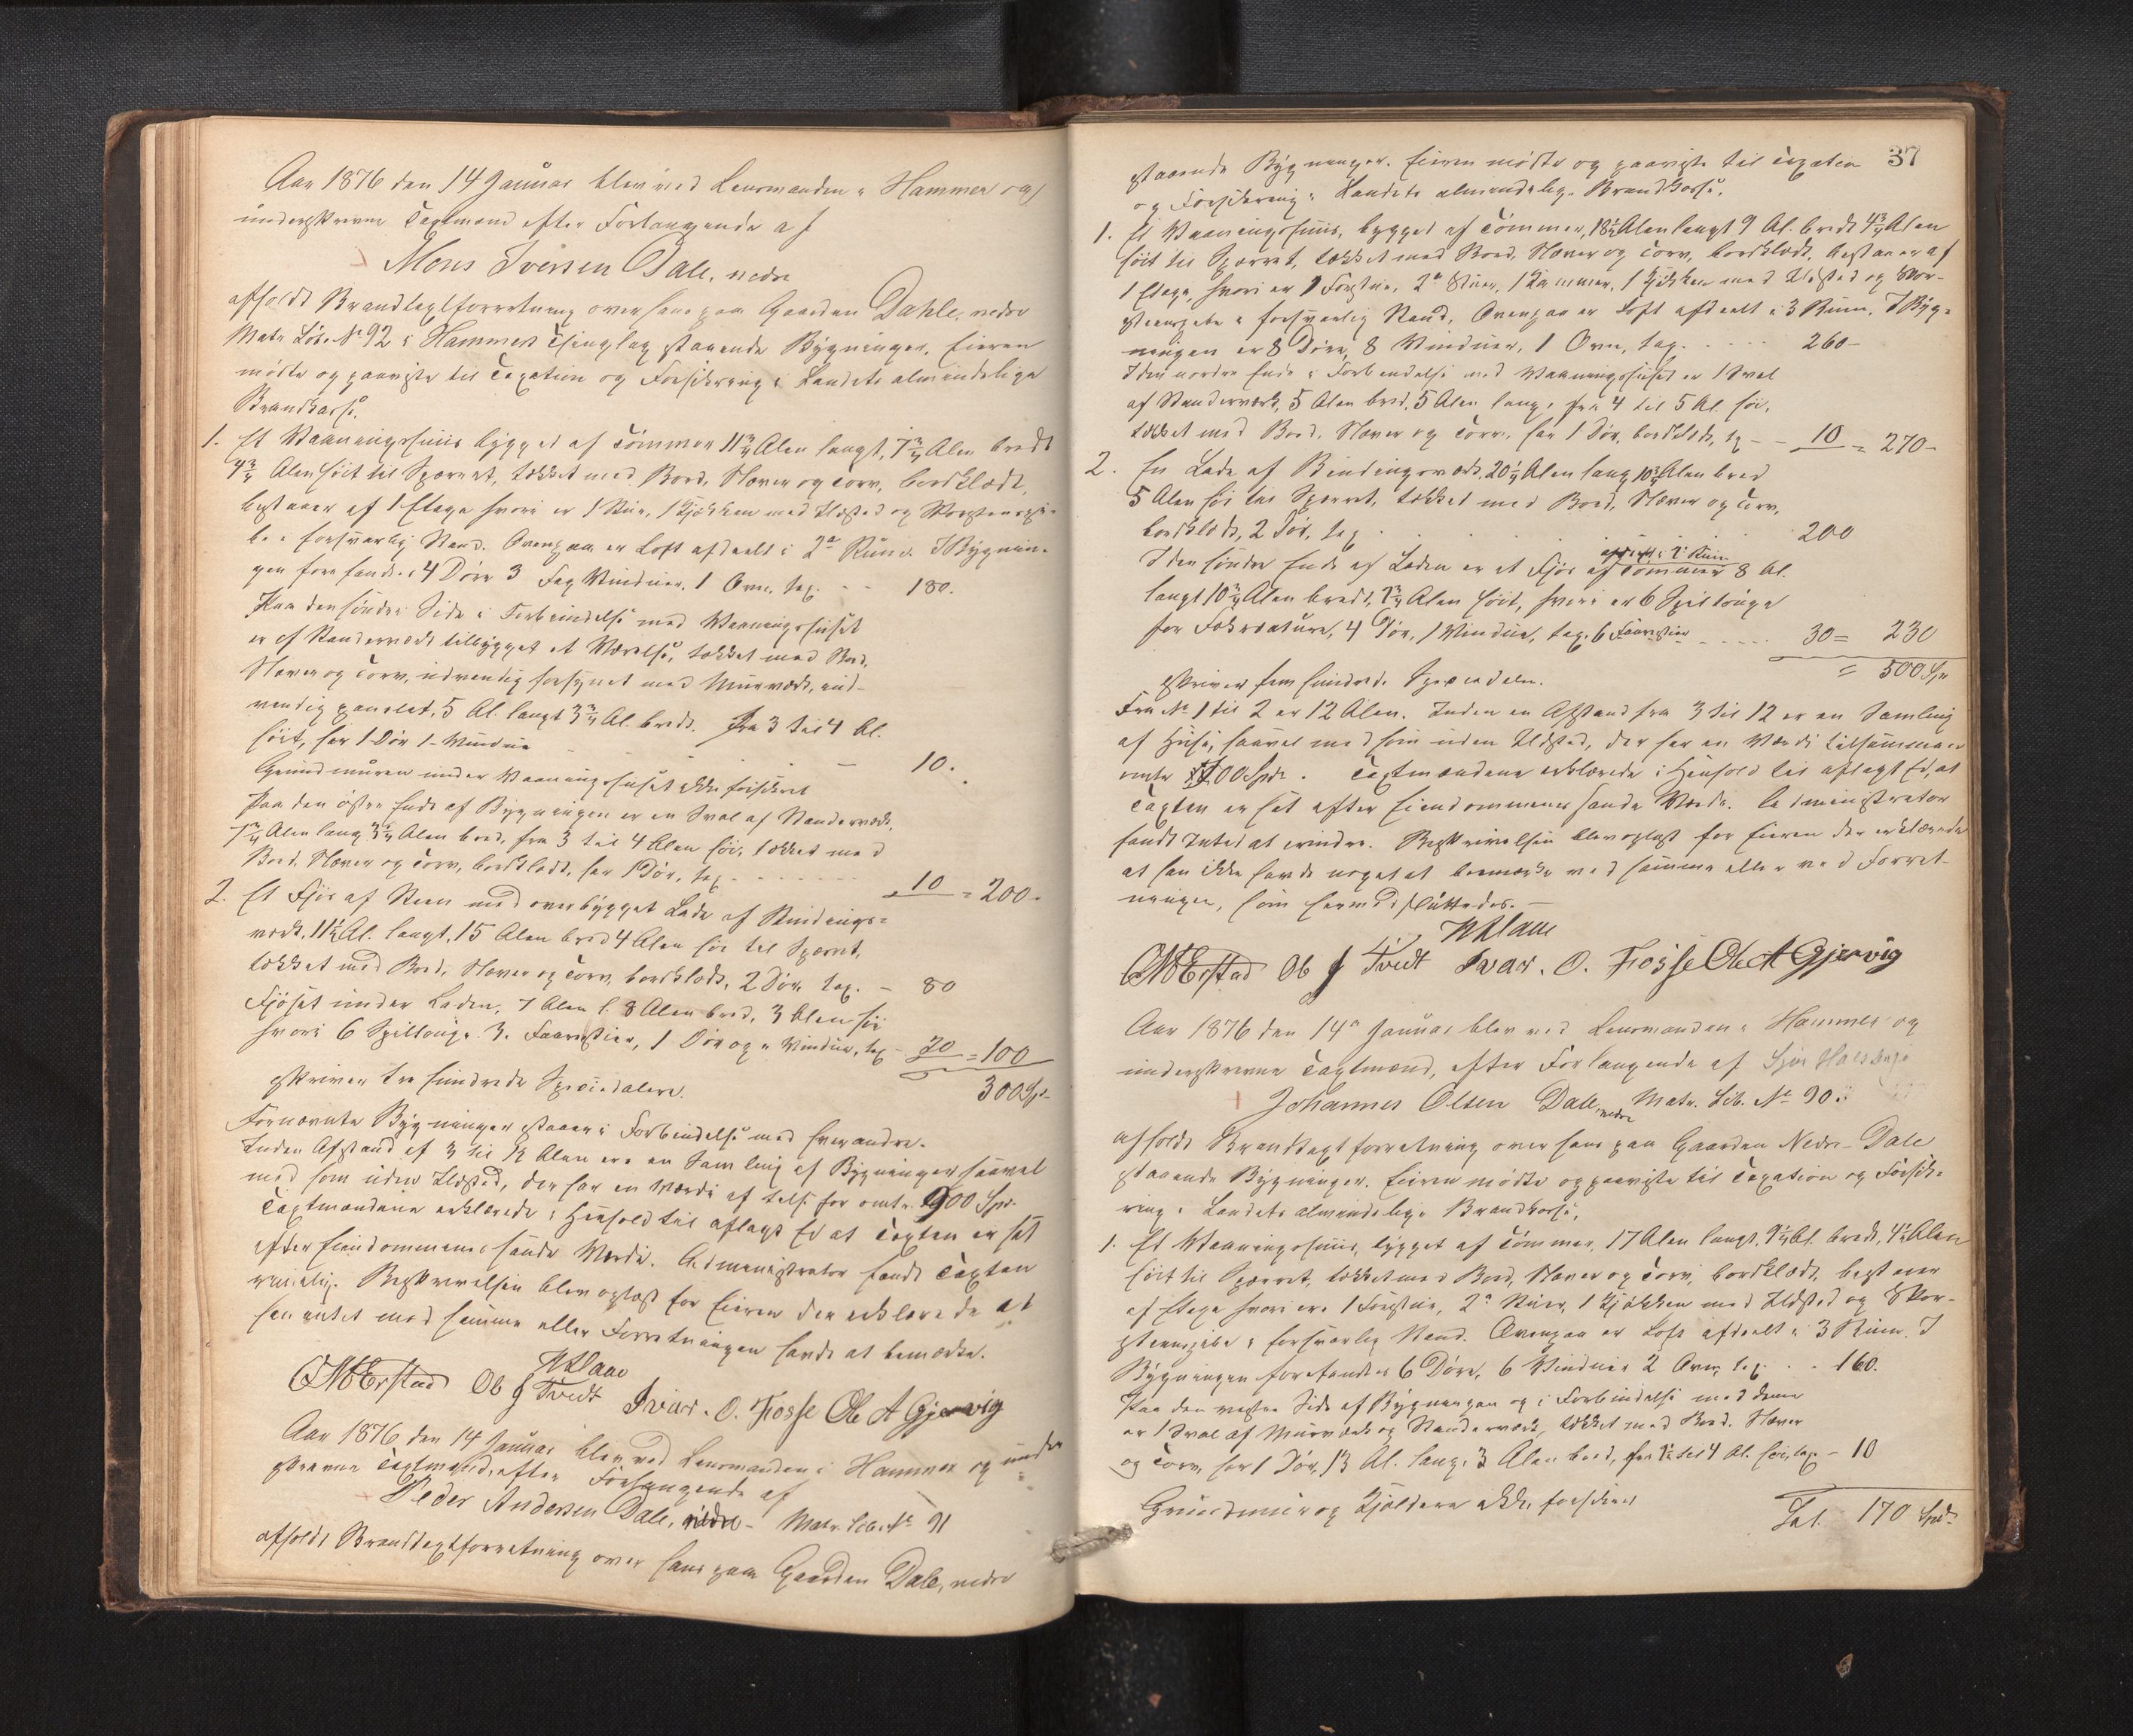 Aar 1876 den 14 Januar blev ved Lensmanden i Hammer og
underskrevne Taxtmænd efter Forlangende af
Mons Iversen Dale, nedre
afholdt Brandtaxtforretning over hans paa Gaarden Dahle, nedre
Matr. Løb. No 92 i Hammers Thinglag staaende Bygninger. Eieren
mødte og paaviste til Taxation og Forsikring i Landets almindelige
Brandkasse.
1. Et Vaaningshuus bygget af Tømmer 11 3/4 Alen langt, 7 3/4 Alen bredt
4 3/4 Alen høit til Sparret, tækket med Bord, Næver og Torv, bordklædt,
bestaaer af 1 Etage hvori er 1 Stue, 1 Kjøkken med Ildsted og Skorstenspi-
be i forsvarlig Stand. Ovenpaa er Loft afdeelt i 2de Rum. I Bygnin-
gen forefandtes 4 Døre 3 Fag Vinduer, 1 Ovn, tax. - - 180.
Paa den søndre Side i Forbindelse med Vaaningshuset
er af Standerværk tilbygget et Værelse, tækket med Bord,
Næver og Torv, udvendig forsynet med Muurværk, ind-
vendig panelet, 5 Al. langt 3 3/4 Al. bredt, fra 3 til 4 Al.
høit, har 1 Dør 1 Vindue - 10.
Grundmuren under Vaaningshuset ikke forsikret
Paa den østre Ende af Bygningen er en Sval af Standerværk,
7 3/4 Alen lang 3 3/4 Alen bred, fra 3 til 4 Alen høi, tækket med
Bord, Næver og Torv, bordklædt, har 1 Dør, tax. - - - 10 = 200.
2. Et Fjøs af Steen med overbygget Lade af Bindings-
værk, 11 1/2 Al. langt, 15 Alen bred 4 Alen høi til Sparret,
tækket med Bord, Næver og Torv, bordklædt, 2 Døre tax. - 80
Fjøset under Laden, 7 Alen l. 8 Alen bred, 3 Alen høi
hvori 6 Spillouge 3. Faarestier, 1 Dør og 1 Vindue, tax - 20 = 100
skriver tre hundrede Speciedaler. 300 Spd.
Fornævnte Bygninger staaer i Forbindelse med hverandre.
Inden Afstand af 3 til 12 Alen ere en Samling af Bygninger saavel
med som uden Ildsted, der har en Værdi af tils. for omtr. 900 Spd.
Taxtmændene erklærede i Henhold til aflagt Ed at Taxten er sat
efter Eiendommens sande Værdi. Administrator fandt Taxten
rimelig. Beskrivelsen blev oplæst for Eieren der erklærede at
han intet mod samme eller Forretningen havde at bemærke.
Ole J Tvedt Ivar. O. Fosse Ole A Gjervig
Aar 1876 den 14 Januar blev ved Lensmanden i Hammer og under
skrevne Taxtmænd, efter Forlangende af
Peder Andersen Dale, nedre - Matr. Løb. No 91
afholdt Brandtaxtforretning over hans paa Gaarden Dale, nedre
37
staaende Bygninger. Eieren mødte og paaviste til Taxation
og Forsikring i Landets almindelige Brandkasse.
1. Et Vaaningshuus, bygget af Tømmer, 18 1/2 Alen langt 9 Al. bredt 4 3/4 Alen
høit til Sparret, tækket med Bord, Næver og Torv, bordklædt, bestaaer af
1 Etage, hvori er 1 Forstue, 2de Stuer, 1 Kammer, 1 Kjøkken med Ildsted og Skor-
stenspibe i forsvarlig Stand, Ovenpaa er Loft afdeelt i 3 Rum. I Byg-
ningen er 8 Døre, 8 Vinduer, 1 Ovn, tax. - - - 260 -
I den nordre Ende i Forbindelse med Vaaningshuset er 1 Sval
af Standerværk, 5 Alen bred, 5 Alen lang, fra 4 til 5 Al. høi,
tækket med Bord, Næver og Torv, har 1 Dør, bordklædt, tx - - 10 = 270 -
2. En Lade af Bindingsværk, 20 1/4 Alen lang 10 3/4 Alen bred
5 Alen høi til Sparret, tækket med Bord, Næver og Torv,
bordklædt, 2 Dør, tax 200
afdeelt i 2 Rum
I den søndre Ende af Laden er et Fjøs af Tømmer 8 Al.
langt 10 3/4 Alen bredt, 3 3/4 Alen høit, hvori er 6 Spillouge
for Fækreature, 4 Dør, 1 Vindue, tax. 6 Faarestier - - - 30 = 230
= 500 Spd
skriver fem hundrede Speciedaler.
Fra No 1 til 2 er 12 Alen. Inden en Afstand fra 3 til 12 er en Samling
af Huse, saavel med som uden Ildsted, der har en Værdi tilsammen
omtr. 00 Spd. Taxtmændene erklærede i Henhold til aflagt Ed, at
Taxten er sat efter Eiendommens sande Værdi. Administrator
fandt Intet at erindre. Beskrivelsen blev oplæst for Eieren der erklærede
at han ikke havde noget at bemærke ved samme eller ved Forret-
ningen, som hermed sluttedes. -
Ole J Tvedt Ivar. O. Fosse Ole A Gjervig
Aar 1876 den 14de Januar blev ved Lensmanden i Hammer og
underskrevne Taxtmænd, efter Forlangende af
Johannes Olsen Dale, nedre Matr. Løb. No 90.
afholdt Brandtaxtforretning over hans paa Gaarden Nedre Dale
staaende Bygninger. Eieren mødte og paaviste til Taxation og Forsik-
ring i Landets almindelige Brandkasse.
1. Et Vaaningshuus, bygget af Tømmer, 17 Alen langt, 9 1/4 Al. bredt, 4 1/2 Alen
høit til Sparret, tækket med Bord, Næver og Torv, bordklædt, bestaaer
af Etage hvori ere 1 Forstue, 2de Stuer, 1 Kjøkken med Ildsted og Skor-
stenspibe i forsvarlig Stand. Ovenpaa er Loft afdeelt i 3 Rum. I
Bygningen forefandtes 6 Døre, 6 Vinduer 2 Ovne, tax. - - 160.
Paa den vestre Side af Bygningen og i Forbindelse med denne
er 1 Sval af Muurværk og Standerværk, tækket med Bord, Næver
og Torv, har 1 Dør, 13 Al. lang, 3 Alen bred, fra 2 1/2 til 4 Al. høi, tax - 10
Grundmuur og Kjældere ikke forsikret
Tal. 170 Spd.